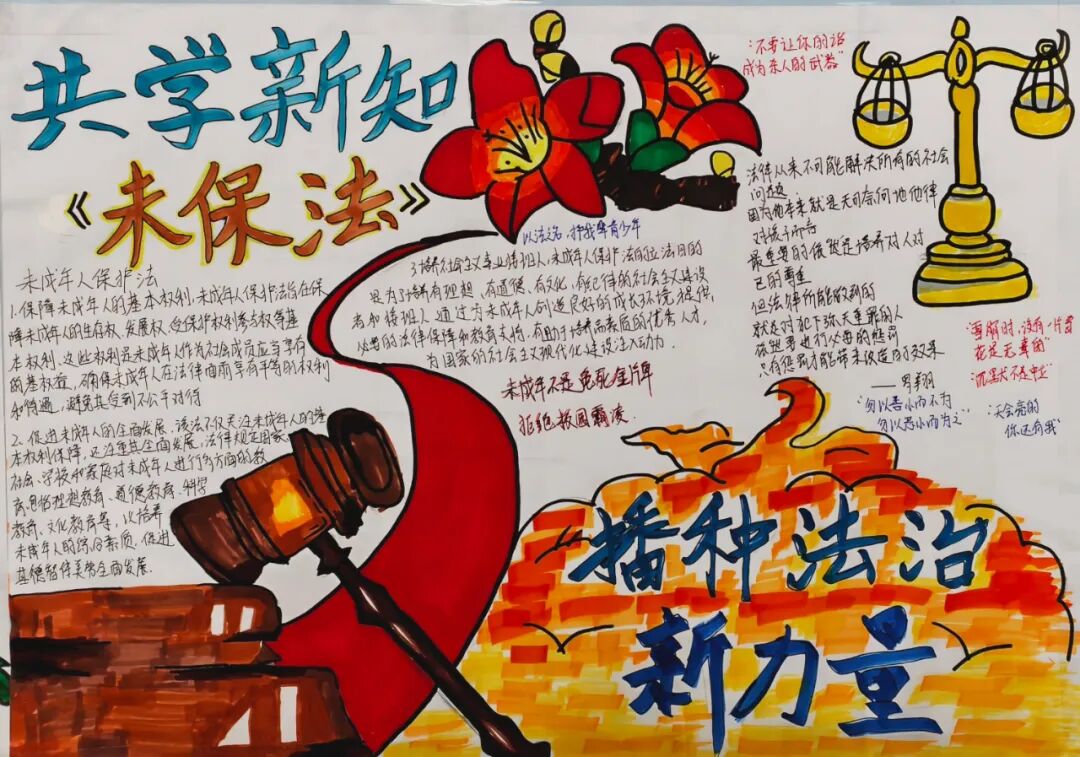 共学新知
《未保法》
"不要让你的话
成为杀人的武器"
未成年人保护法
1.保障未成年人的基本权利,未成年人保护法旨在保
障未成年人的生存权、发展权、受保护权利参与权等基
本权利,这些权利是未成年人作为社会成员应当享有
的基权益,确保未成年人在法律面前享有平等的权利
和待遇,避免其受到不公平对待
2、促进未成年人的全面发展、该法不仅关注未成年人的基
本权利保障,还注重其全面发展,法律规定国家、
社会、学校和家庭对未成年人进行多方面的教
育,包括理想教育、道德教育、科学
教育、文化教育等,以培养
未成年人的综合素质,促进
其德智体美劳全面发展.
以法之名,护我青少年
3培养社会主义事业接班人,未成年人保护法的立法目的
是为了培养有理想、有道德、有文化、有纪律的社会主义建设
者和接班人通过为未成年人创造良好的成长环境,提供
必要的法律保障和教育支持,有助于培养高素质的优秀人才,
为国家的社会主义现代化建设注入动力.
未成年不是免死金牌
拒绝校园霸凌.
法律从来不可能解决所有的社会
问题
因为他本来就是无可奈何地他律
最重要的依然是培养对人对
己的尊重
但法律所能做到的
就是对犯下弥天重罪的人
依然要也行必要的惩罚
只有惩罚才能带来改造的效果
——罗翔
"雪崩时,没有一片雪
花是无辜的"
"沉默从不是中立"
"勿以善小而不为
勿以恶小而为之"
"天会亮的
你还有我"
播种法治
新力量